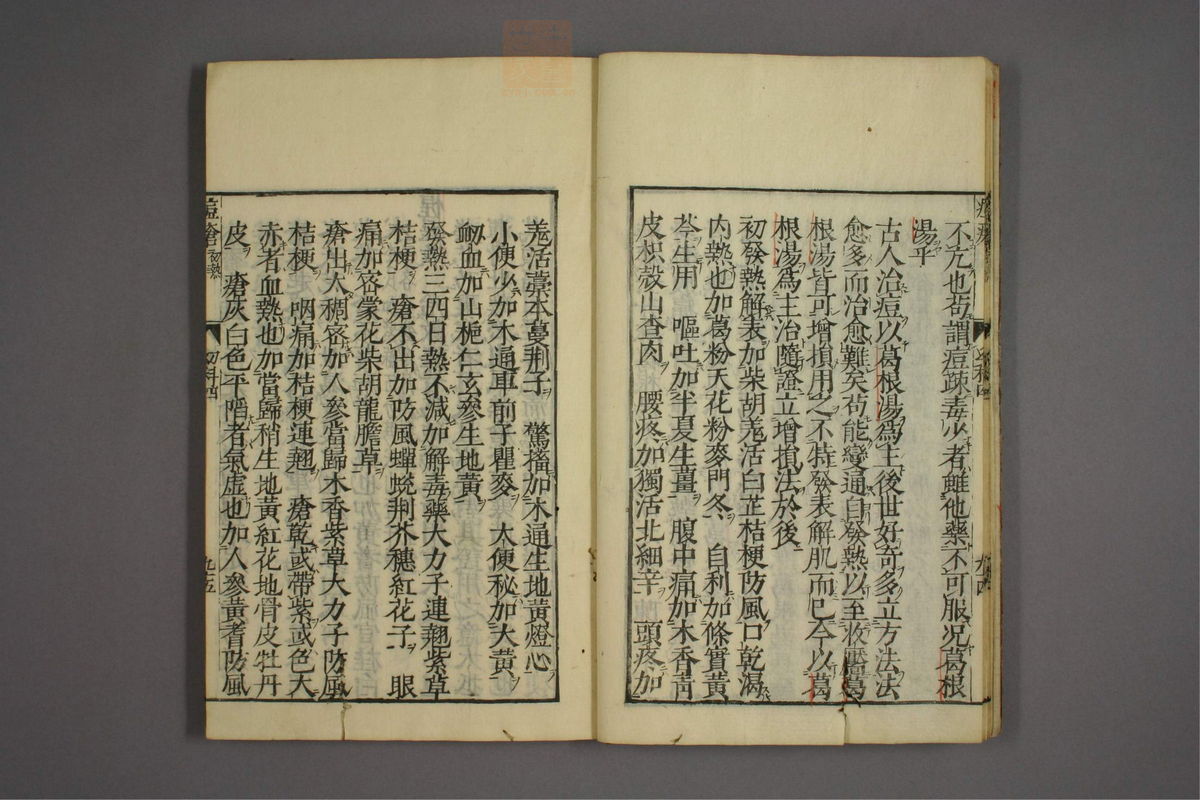 不亢也苟謂痘疎毒少者雖他藥不可服况葛根
湯乎
古人治痘以葛根湯為主後世好奇多立方法法
愈多而治愈難矣苟能變通自發熱以至收靨葛
根湯皆可增損用之不特發表解肌而已今以葛
根湯為主治隨證立增損法於後
初發熱解表加柴胡羗活白芷桔梗防風口乾渴
内熱也加葛粉天花粉麥門冬 自利加條實黃
芩生用 嘔吐加半夏生薑 腹中痛加木香靑
皮枳殼山查肉 腰疼加獨活北細辛 頭疼加
羗活藁本蔓荆子 驚搐加木通生地黃燈心
小便少加木通車前子瞿麥 大便秘加大黃
衂血加山梔仁玄參生地黃
發熱三四日熱不減加解毒藥大力子連翹紫草
桔梗 瘡不出加防風蟬蛻荆芥穗紅花子 眼
痛加密蒙花柴胡龍膽草
瘡出太稠密加人參當歸木香紫草大力子防風
桔梗 咽痛加桔梗連翹 瘡乾或帶紫或色大
赤者血熱也加當歸稍生地黃紅花地骨皮牡丹
皮 瘡灰白色平陷者氣虛也加人參黃耆防風
痘瘡
初熱
幼科四
九十五